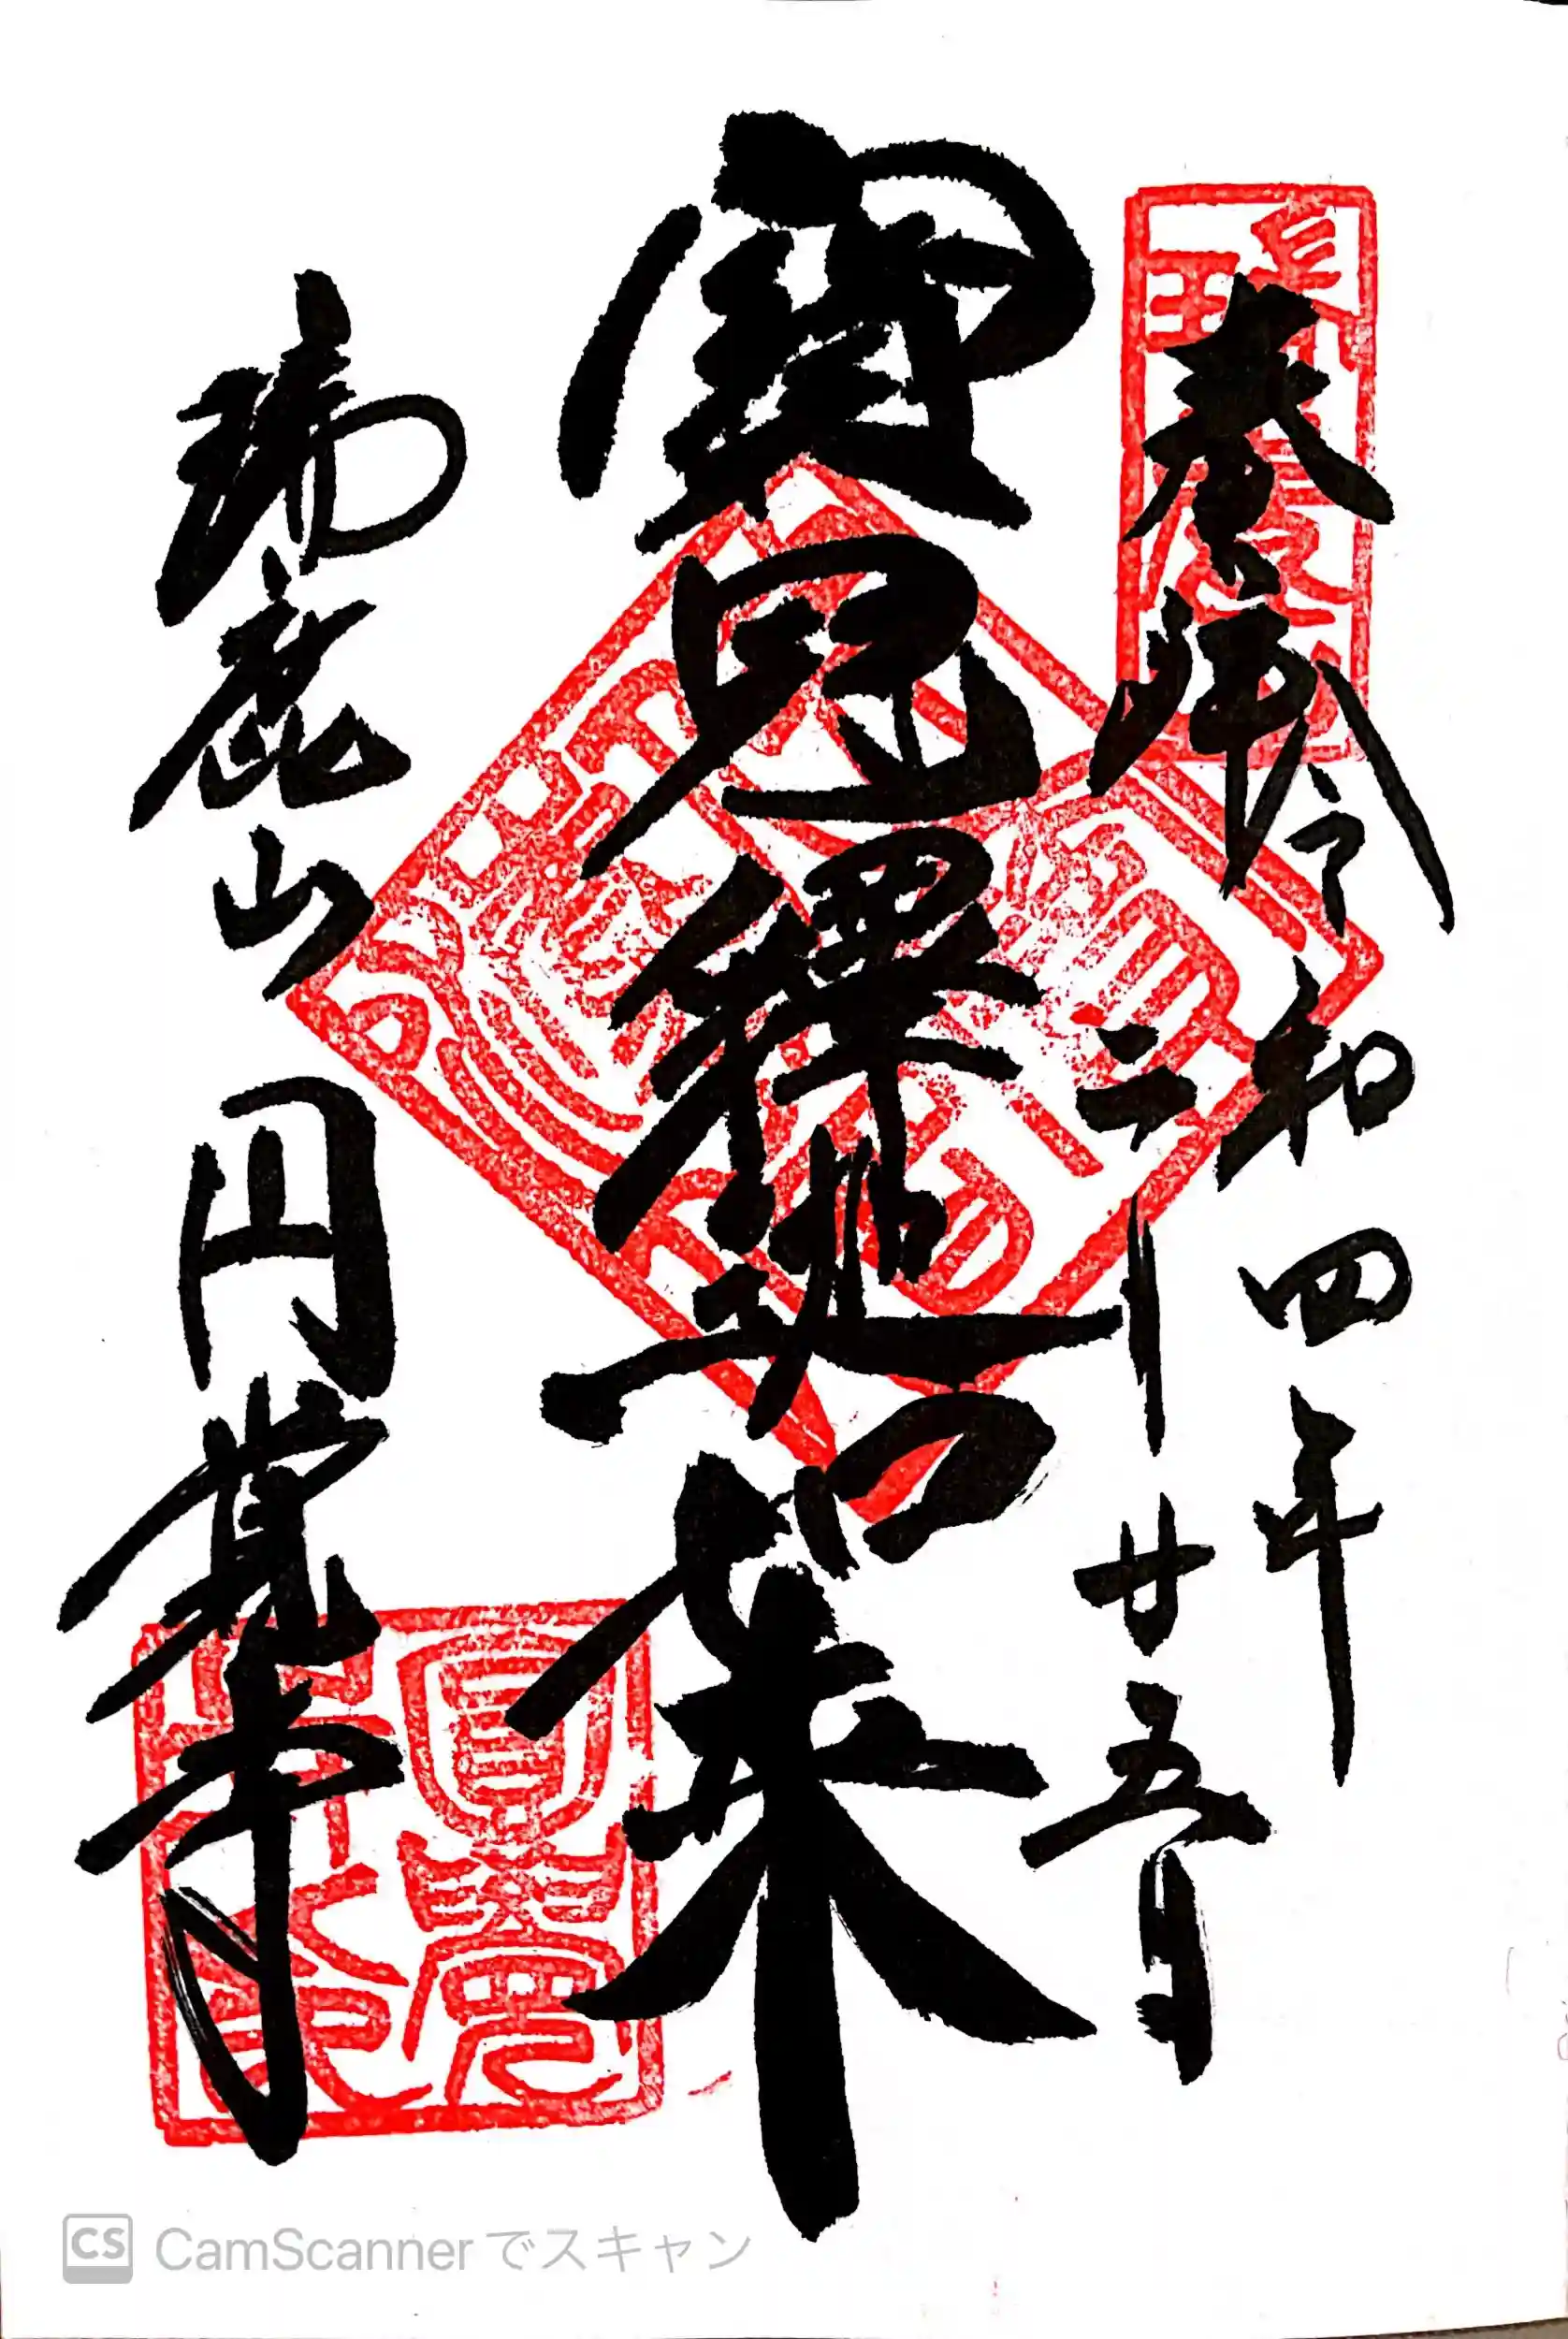 奉拝 令和四年
廿五日
寳冠釋迦如来
瑞鹿山 円覚寺
CS CamScannerでスキャン